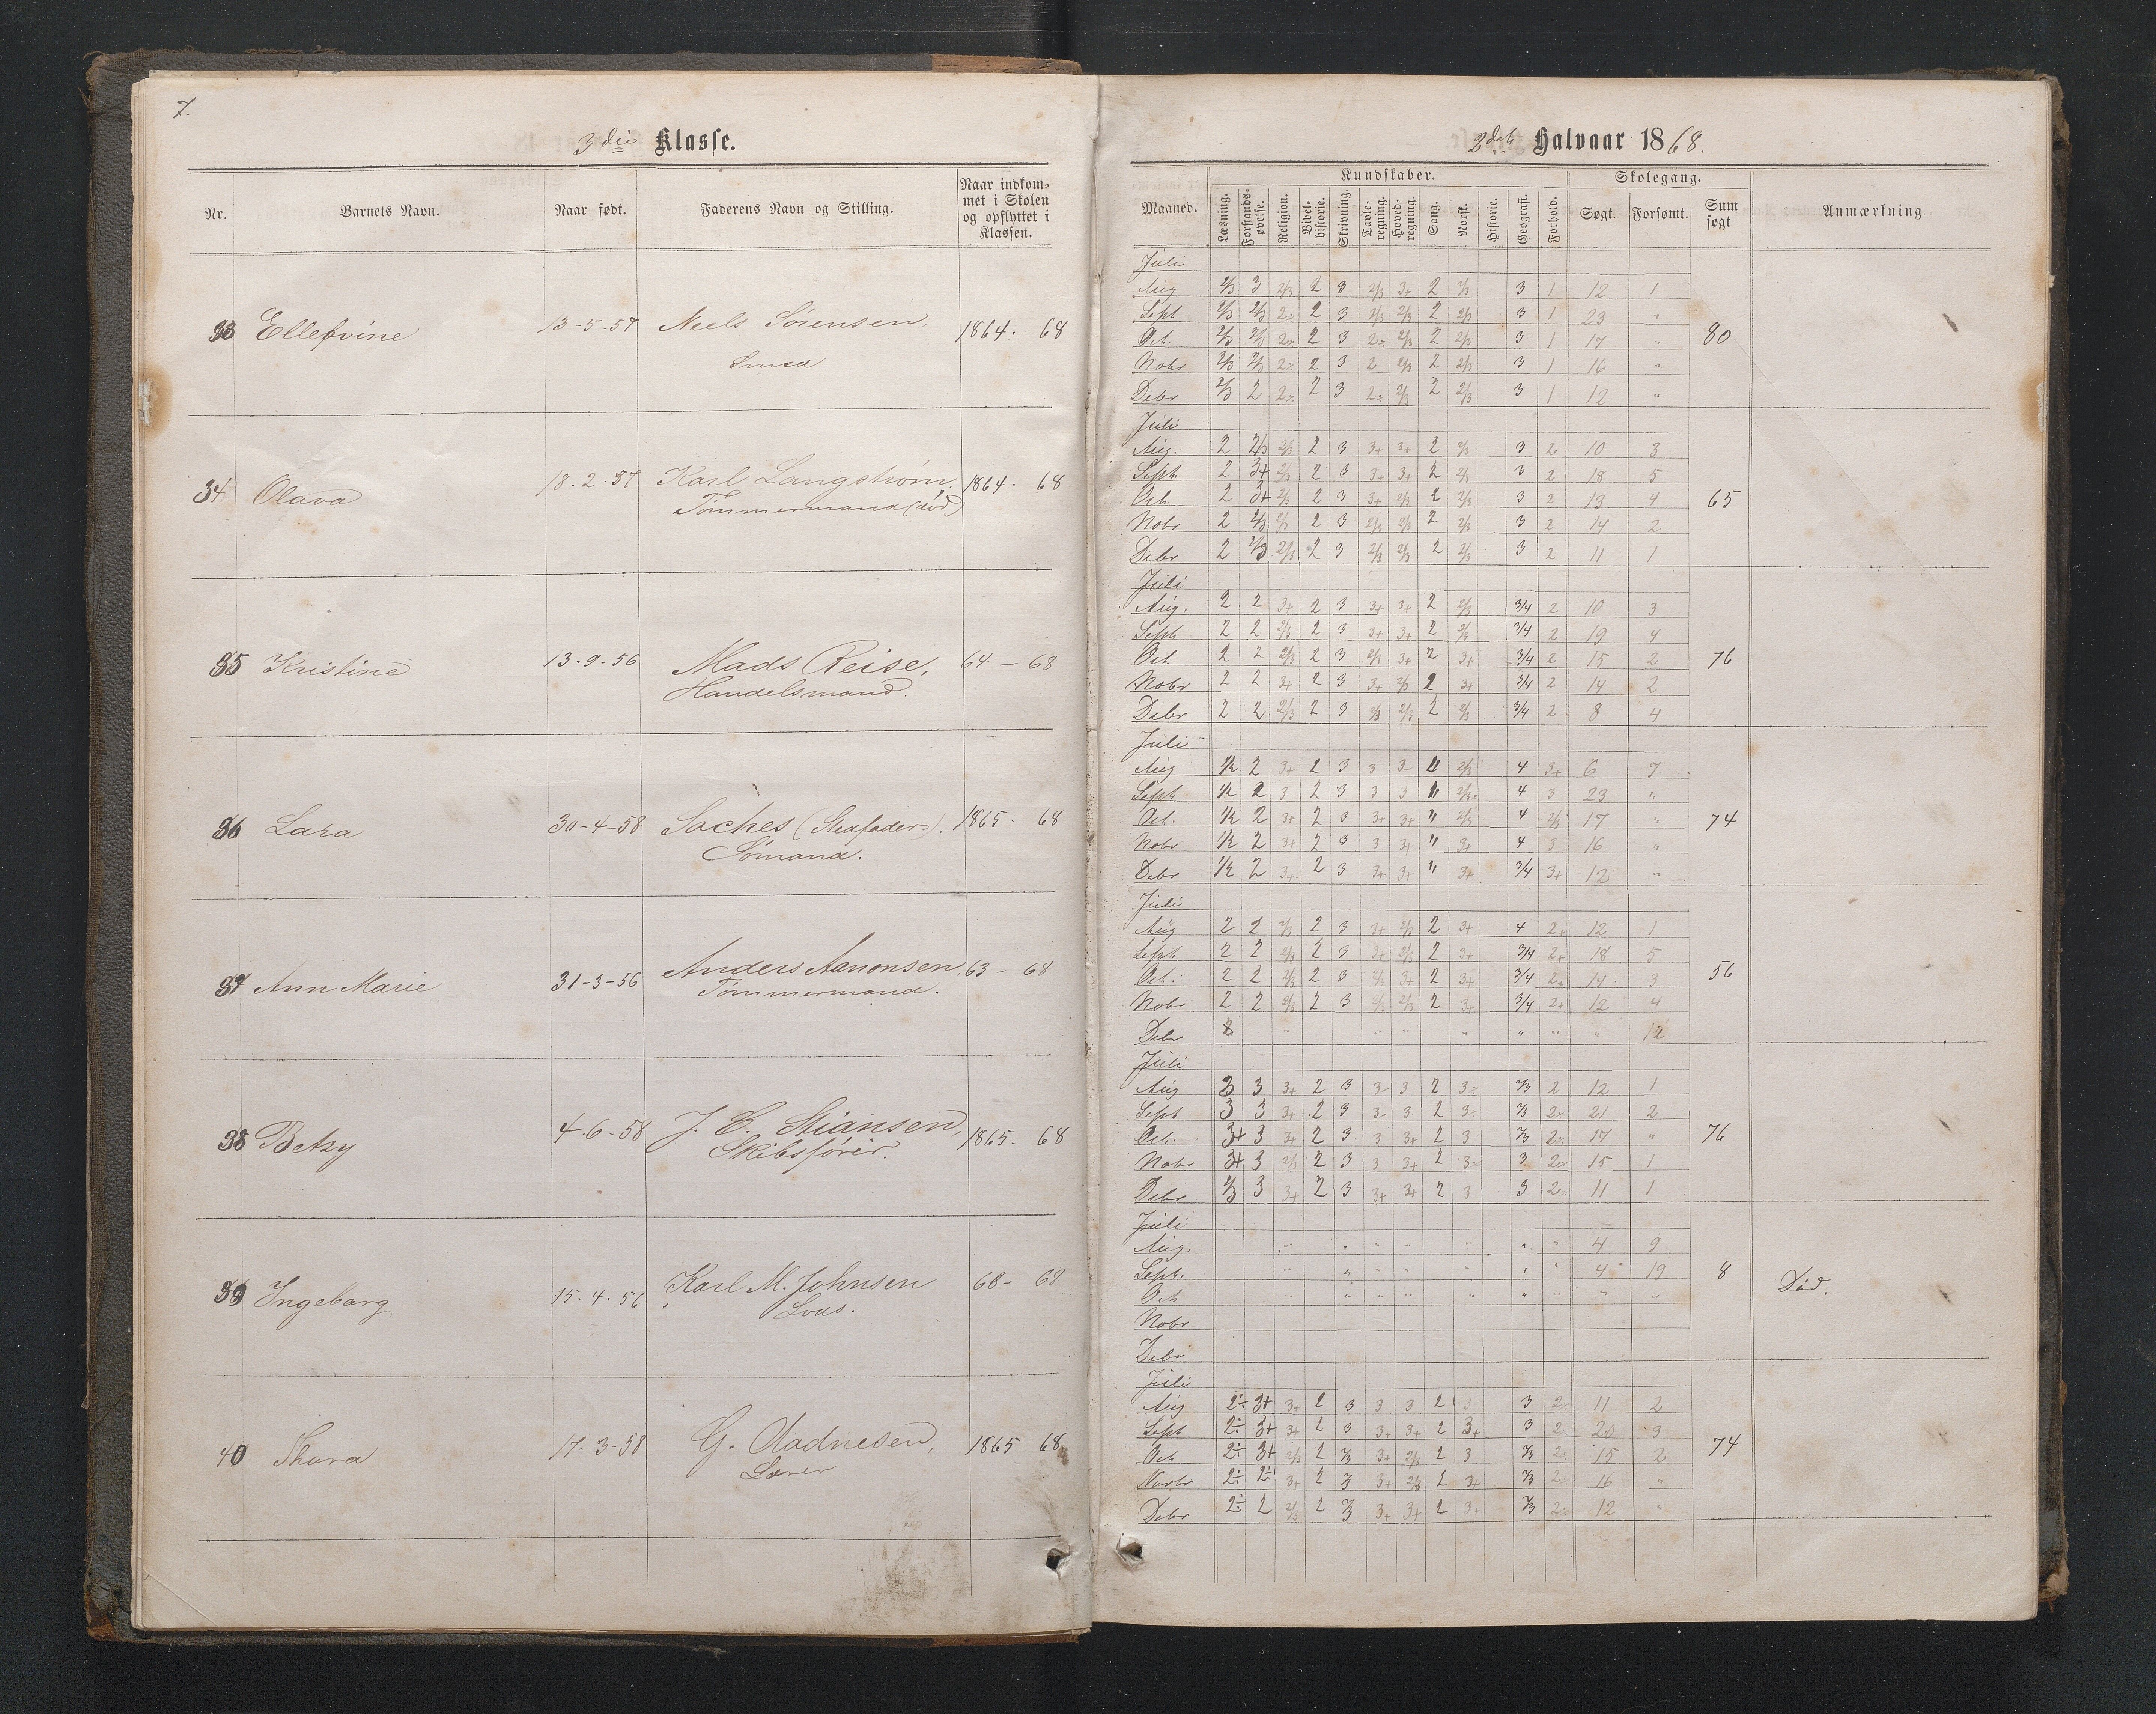 7.
3die Klasse.
Nr.
Barnets Navn.
Naar født.
Faderens Navn og Stilling.
Naar indkom-
met i Skolen
og opflyttet i
Klassen.
33 Ellefvine 13-5-57 Niels Sørensen 1864. 68
Smed
34 Olava 18-2-57 Karl Langstrøm, 1864. 68
Tømmermand (død)
35 Kristine 13-9-56 Mads Reise, 64-68
Handelsmand.
36 Lara 30-4-58 Saches (Stedfader). 1865. 68
Sømand.
37 Ann Marie 31-3-56 Anders Aanonsen, 63-68
Tømmermand.
38 Betzy 4-6-58 J. C. Stiansen, 1865. 68
Skibsfører.
39 Ingeborg 15-4-56 Karl M. Johnsen 68-68
Lods.
40 Thora 17-3-58 G. Oladnesen, 1865 68
Lærer
2det Halvaar 1868.
Maaned.
Kundskaber.
Læsning.
Forstands-
øvelse.
Religion.
Bibel-
historie.
Skrivning.
Tavle-
regning.
Hoved-
regning.
Sang.
Norsk.
Historie.
Geografi.
Forhold.
Skolegang.
Søgt.
Forsømt.
Sum
søgt
Anmærkning.
Juli
Aug 2/3 3 2/3 2 3 2/3 3+ 2 2/3 3 1 12 1
Sept 2/3 2/3 2÷ 2 3 2/3 2/3 2 2/3 3 1 23 "
Oct. 2/3 2/3 2÷ 2 3 2÷ 2/3 2 2/3 3 1 17 " 80
Nobr 2/3 2/3 2÷ 2 3 2 2/3 2 2/3 3 1 16 "
Debr 2/3 2 2÷ 2 3 2÷ 2/3 2 2/3 3 1 12 "
Juli
Aug. 2 2/3 2/3 2 3 3+ 3+ 2 2/3 3 2 10 3
Sept. 2 3+ 2/3 2 3 3+ 3+ 2 2/3 3 2 18 5
Oct. 2 3+ 2/3 2 3 3+ 2/3 2 2/3 3 2 13 4 65
Nobr 2 2/3 2/3 2 3 2/3 2/3 2 2/3 3 2 14 2
Debr 2 2/3 2/3 2 3 2/3 2/3 2 2/3 3 2 11 1
Juli
Aug. 2 2 3+ 2 3 3+ 3+ 2 2/3 3/4 2 10 3
Sept 2 2 2/3 2 3 3+ 3+ 2 2/3 3/4 2 19 4
Oct. 2 2 2/3 2 3 2/3 3+ 2 3+ 3/4 2 15 2 76
Nobr 2 2 3+ 2 3 3+ 2/3 2 3+ 3/4 2 14 2
Debr 2 2 2/3 2 3 2/3 2/3 2 2/3 3/4 2 8 4
Juli
Aug 1/2 2 3+ 2 3 3 3- " 2/3 4 3+ 6 7
Sept 1/2 2 3 2 3 3 3 " 2/3 4 3 23 "
Oct. 1/2 2 3+ 2 3 3+ 3+ " 2/3 4 2/3 17 " 74
Nobr 1/2 2 3+ 2 3 3 3+ " 3+ 4 3 16 "
Debr 1/2 2 3+ 2 3 3+ 3+ " 3+ 3/4 3+ 12 "
Juli
Aug 2 2 2/3 2 3 3+ 2/3 2 3+ 4 2+ 12 1
Sept 2 2 2/3 2 3 3+ 2/3 2 3+ 3/4 2+ 18 5
Oct. 2 2 2/3 2 3 2/3 3+ 2 3+ 3/4 2+ 14 3 56
Nobr 2 2 2/3 2 3 2/3 2/3 2 3+ 3/4 2+ 12 4
Debr " " " " " " " 12
Juli
Aug 3 3 3+ 2 3 3- 3 2 3÷ 2/3 2 12 1
Sept 3 3 3+ 2 3 3- 3 2 3÷ 2/3 2÷ 21 2
Oct. 3+ 3 3+ 2 3 3 3+ 2 3 2/3 2÷ 17 " 76
Nobr 3+ 3 2/3 2 3 3 3+ 2 3÷ 3 2÷ 15 1
Debr 2/3 3 3+ 2 3 3+ 3+ 2 3 3 2÷ 11 1
Juli
Aug. " " " " " " " 4 9
Sept. " " " " " " 4 19 8 Død.
Oct " " " " " " " " "
Nobr
Debr
Juli
Aug 2÷ 3+ 3+ 2 3 3 3 2 3 3 2÷ 11 2
Sept 2÷ 3+ 3+ 2 3 3+ 3+ 2 3+ 3 2 20 3
Oct 2÷ 3+ 2/3 2 2/3 3+ 2/3 2 3 2/3 2÷ 15 2 74
Novbr 2÷ 2÷ 3+ 2 2/3 3+ 2/3 2 3+ 2/3 2÷ 16 "
Debr 2÷ 2 2/3 2 2/3 3+ 3+ 2 3+ 2/3 2÷ 12 "